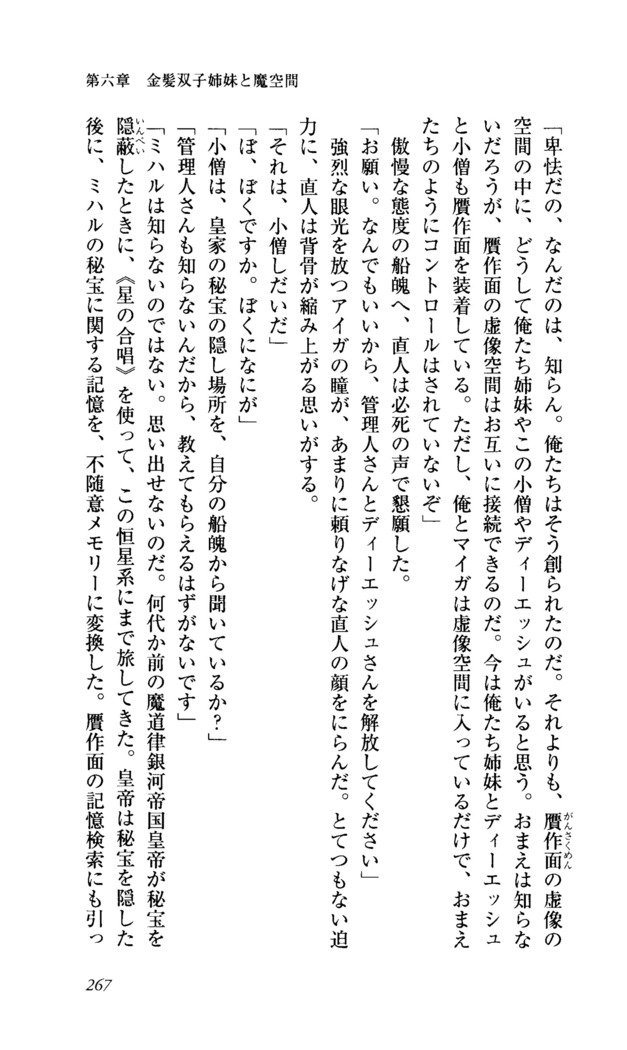 第六章　金髪双子姉妹と魔空間
「卑怯だの、なんだのは、知らん。俺たちはそう創られたのだ。それよりも、贋作面の虚像の
がんさくめん
空間の中に、どうして俺たち姉妹やこの小僧やディーエッシュがいると思う。おまえは知らな
いだろうが、贋作面の虚像空間はお互いに接続できるのだ。今は俺たち姉妹とディーエッシュ
と小僧も贋作面を装着している。ただし、俺とマイガは虚像空間に入っているだけで、おまえ
たちのようにコントロールはされていないぞ」
傲慢な態度の船魄へ、直人は必死の声で懇願した。
「お願い。なんでもいいから、管理人さんとディーエッシュさんを解放してください」
強烈な眼光を放つアイガの瞳が、あまりに頼りなげな直人の顔をにらんだ。とてつもない迫
力に、直人は背骨が縮み上がる思いがする。
「それは、小僧しだいだ」
「ぼ、ぼくですか。ぼくになにが」
「小僧は、皇家の秘宝の隠し場所を、自分の船魄から聞いているか？」
「管理人さんも知らないんだから、教えてもらえるはずがないです」
「ミハルは知らないのではない。思い出せないのだ。何代か前の魔道律銀河帝国皇帝が秘宝を
隠蔽したときに、《星の合唱》を使って、この恒星系にまで旅してきた。皇帝は秘宝を隠した
いんぺい
後に、ミハルの秘宝に関する記憶を、不随意メモリーに変換した。贋作面の記憶検索にも引っ
267